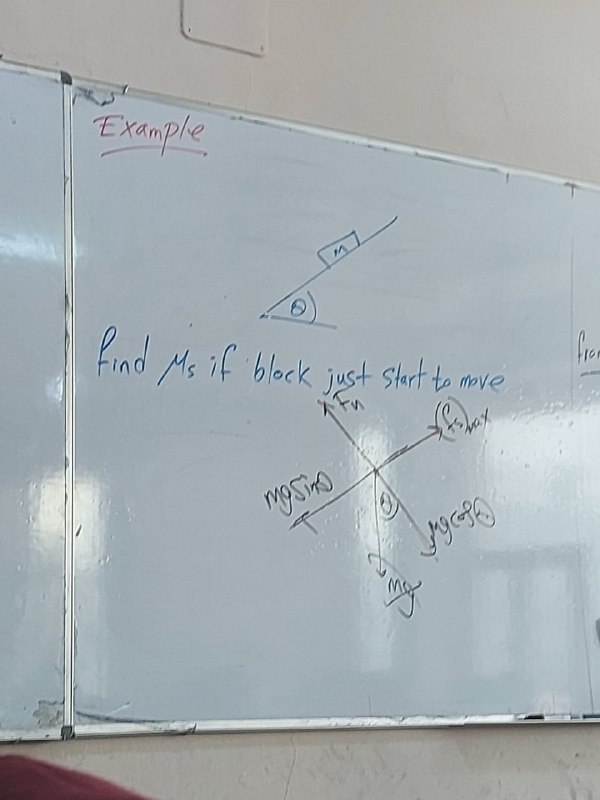 Example
M
θ
find μs if block just start to move
Fn
(fs)max
mg sinθ
θ
mg cosθ
Mg